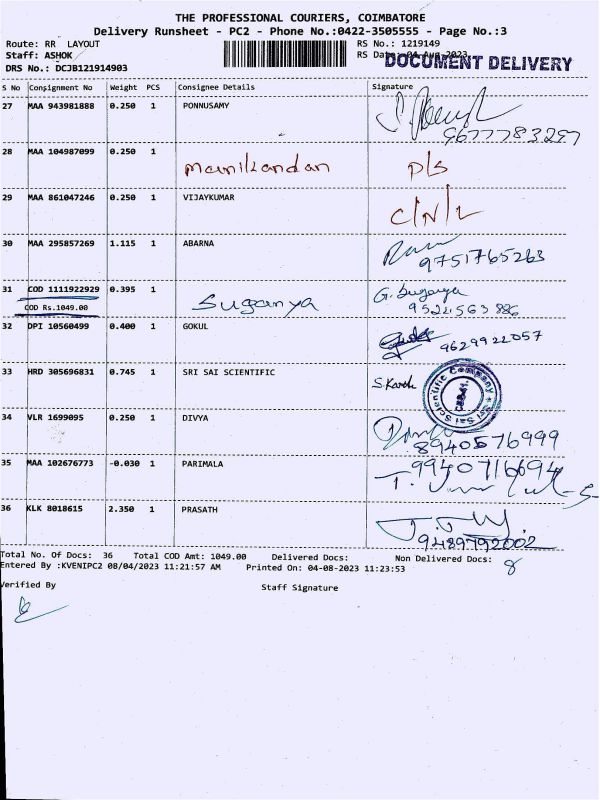 THE PROFESSIONAL COURIERS, COIMBATORE
Delivery Runsheet - PC2 - Phone No.:0422-3505555 - Page No.:3
Route: RR LAYOUT RS No.: 1219149
Staff: ASHOK RS Date: 04-Aug-2023
DOCUMENT DELIVERY
DRS No.: DCJB121914903
S No Consignment No Weight PCS Consignee Details Signature
27 MAA 943981888 0.250 1 PONNUSAMY
9677783297
28 MAA 104987099 0.250 1
manikandan P/S
29 MAA 861047246 0.250 1 VIJAYKUMAR
C/N/L
30 MAA 295857269 1.115 1 ABARNA
9751765263
31 COD 1111922929 0.395 1 Suganya G. Suganya
COD Rs.1049.00
32 DPI 10560499 0.400 1 GOKUL
9629922057
33 HRD 305696831 0.745 1 SRI SAI SCIENTIFIC
Sri Sai Scientific Company
34 VLR 1699095 0.250 1 DIVYA
8940576999
35 MAA 102676773 -0.030 1 PARIMALA
9940716694
36 KLK 8018615 2.350 1 PRASATH
9489792002
Total No. Of Docs: 36 Total COD Amt: 1049.00 Delivered Docs: Non Delivered Docs: 8
Entered By :KVENIPC2 08/04/2023 11:21:57 AM Printed On: 04-08-2023 11:23:53
Verified By Staff Signature